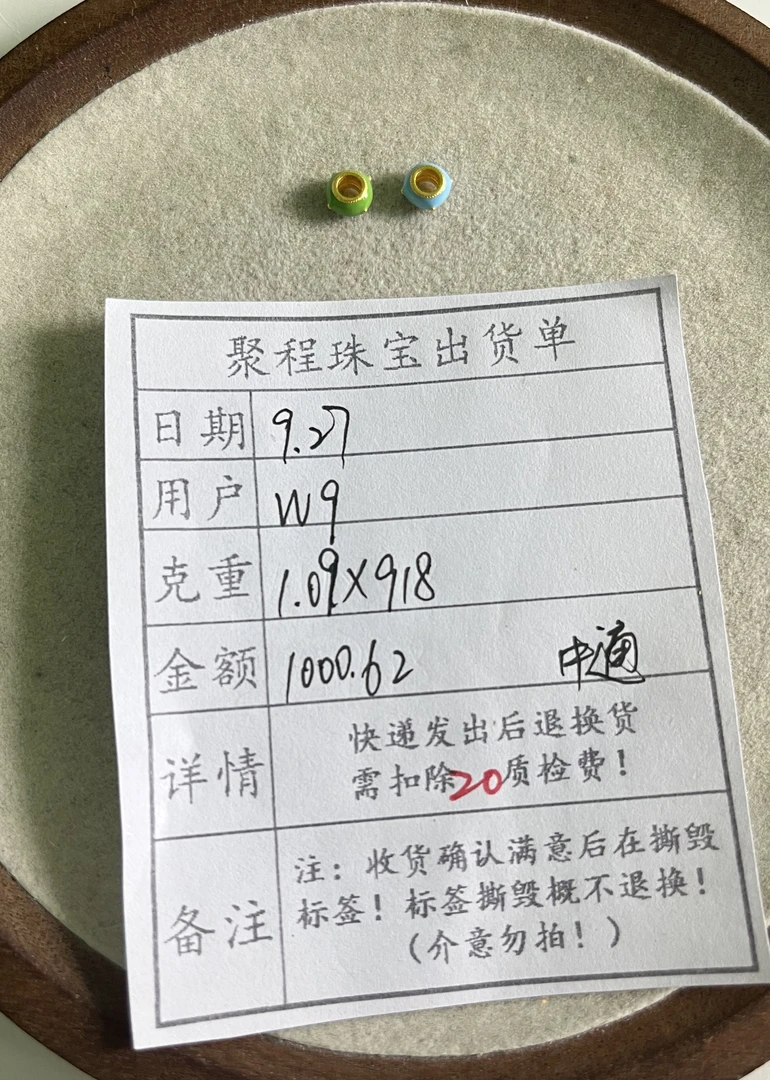 聚程珠宝出货单
日期 9.27
用户 W9
克重 1.09X918
金额 1000.62 中通
详情 快递发出后退换货
需扣除20质检费！
备注 注：收货确认满意后在撕毁
标签！标签撕毁概不退换！
（介意勿拍！）